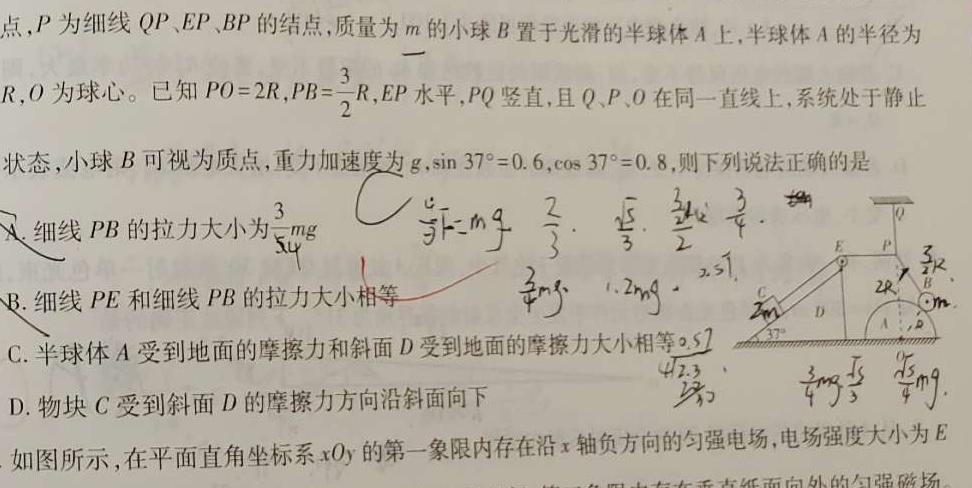 点,P 为细线 QP、EP、BP 的结点,质量为 m 的小球 B 置于光滑的半球体 A 上,半球体 A 的半径为
R,O 为球心。已知 PO=2R,PB=3/2R,EP 水平,PQ 竖直,且 Q、P、O 在同一直线上,系统处于静止
状态,小球 B 可视为质点,重力加速度为 g,sin 37°=0.6,cos 37°=0.8,则下列说法正确的是
A. 细线 PB 的拉力大小为3/4mg
B. 细线 PE 和细线 PB 的拉力大小相等
C. 半球体 A 受到地面的摩擦力和斜面 D 受到地面的摩擦力大小相等
D. 物块 C 受到斜面 D 的摩擦力方向沿斜面向下
Q
E
P
3/2R
C
2m
2R
B
m
D
A
R
37°
F=mg
2/3.
√5/3.
3/4.
3/4mg.
1.2mg.
3/4mg
√5/3
√5/4mg.
如图所示,在平面直角坐标系 xOy 的第一象限内存在沿 x 轴负方向的匀强电场,电场强度大小为 E
象限内存在垂直纸面向外的匀强磁场。